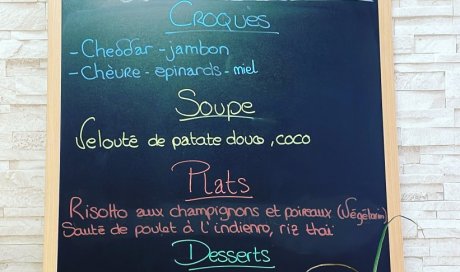 Croques
- Cheddar - jambon
- Chèvre - épinards - miel
Soupe
Velouté de patate douce, coco
Plats
Risotto aux champignons et poireaux (Végétarien)
Sauté de poulet à l'indienne, riz thaï
Desserts